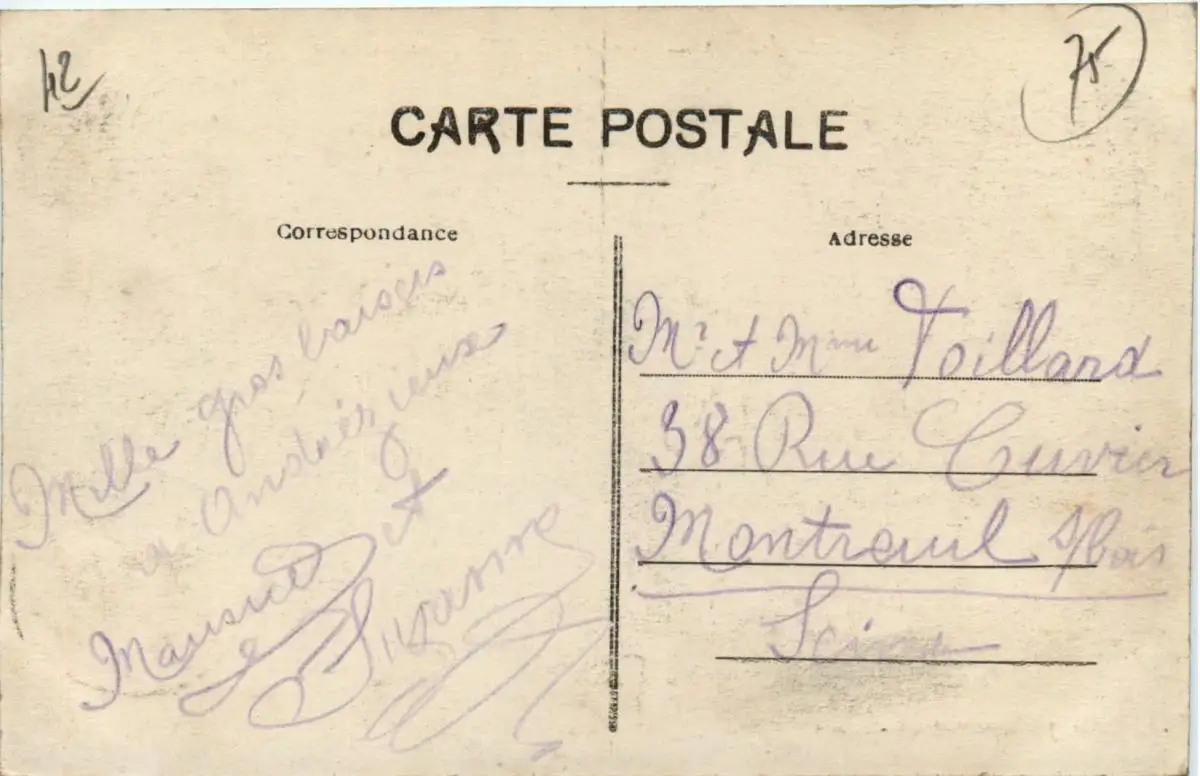 42
75
CARTE POSTALE
Correspondance
Adresse
Mille gros baisers
a Andrézieux
Maurice et
Suzanne
Mr et Mme Voillard
38 Rue Cuvier
Montreuil s/bois
Seine